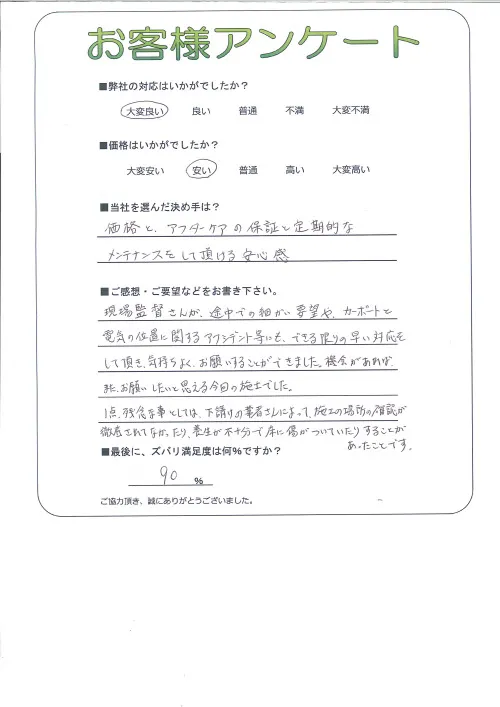 お客様アンケート
■弊社の対応はいかがでしたか？
大変良い 良い 普通 不満 大変不満
■価格はいかがでしたか？
大変安い 安い 普通 高い 大変高い
■当社を選んだ決め手は？
価格と、アフターケアの保証と定期的な
メンテナンスをして頂ける安心感
■ご感想・ご要望などをお書き下さい。
現場監督さんが、途中での細かい要望や、カーポートと
電気の位置に関するアクシデント等にも、できる限りの早い対応を
して頂き、気持ちよく、お願いすることができました。機会があれば、
またお願いしたいと思える今回の施工でした。
1点、残念な事としては、下請けの業者さんによって、施工の場所の確認が
徹底されてなかったり、養生が不十分で床に傷がついていたりすることが
あったことです。
■最後に、ズバリ満足度は何％ですか？
90 ％
ご協力頂き、誠にありがとうございました。